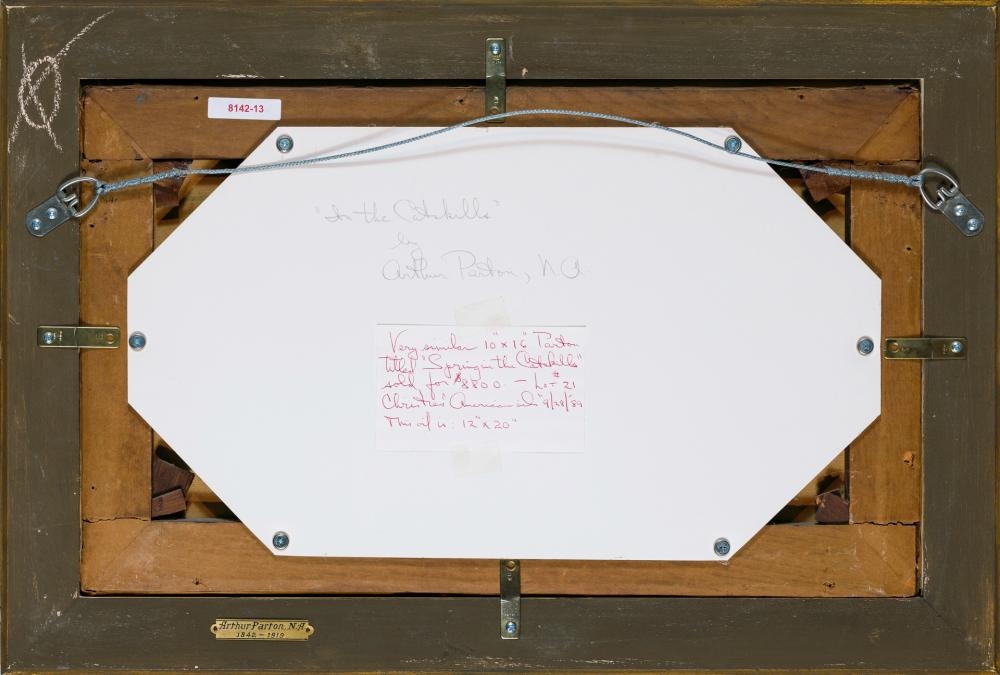 8142-13
"In the Catskills"
by
Arthur Parton, N A
Very similar 10" x 16" Parton
titled "Spring in the Catskills"
sold for $8800. — Lot # 21
Christies "American oils" 9/28/'89
This oil is: 12" x 20"
Arthur Parton, N.A.
1842 - 1919